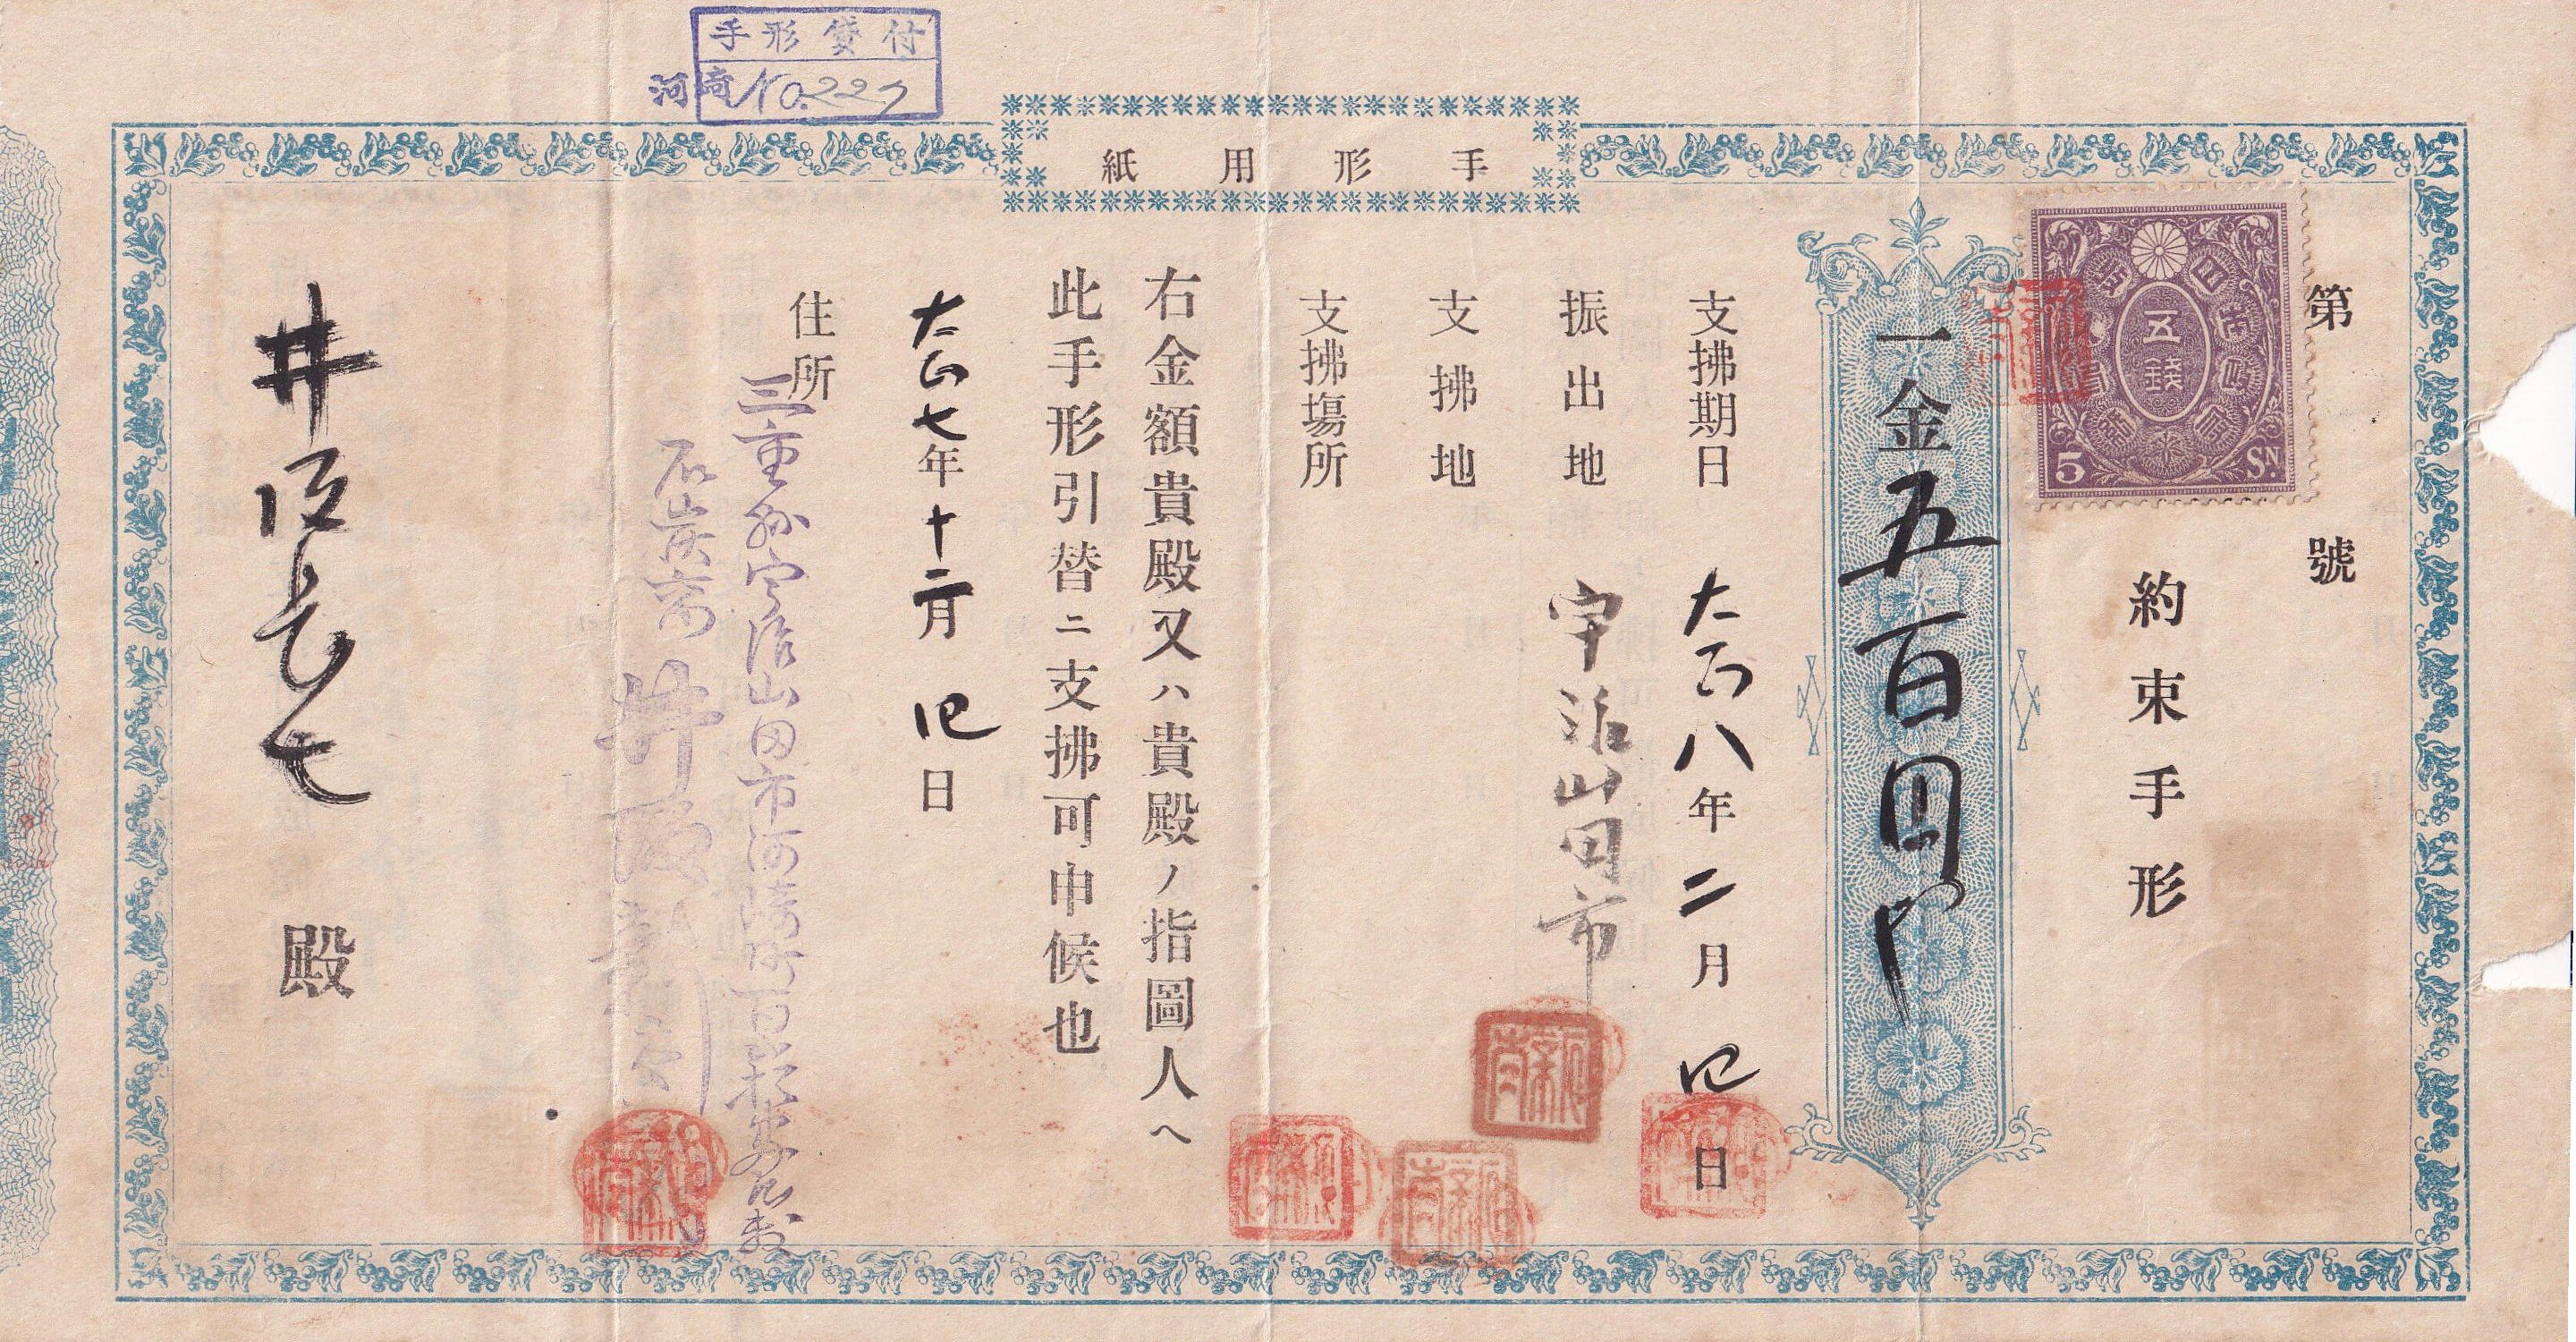 手形貸付
河崎 No.227
手形用紙
第 號
五錢
5 SN
約束手形
一金五百圓
支拂期日 大正八年二月四日
振出地 宇治山田市
支拂地
支拂塲所
右金額貴殿又ハ貴殿ノ指圖人ヘ
此手形引替ニ支拂可申候也
大正七年十二月四日
住所
三重縣宇治山田市河崎町百拾
石炭商
殿